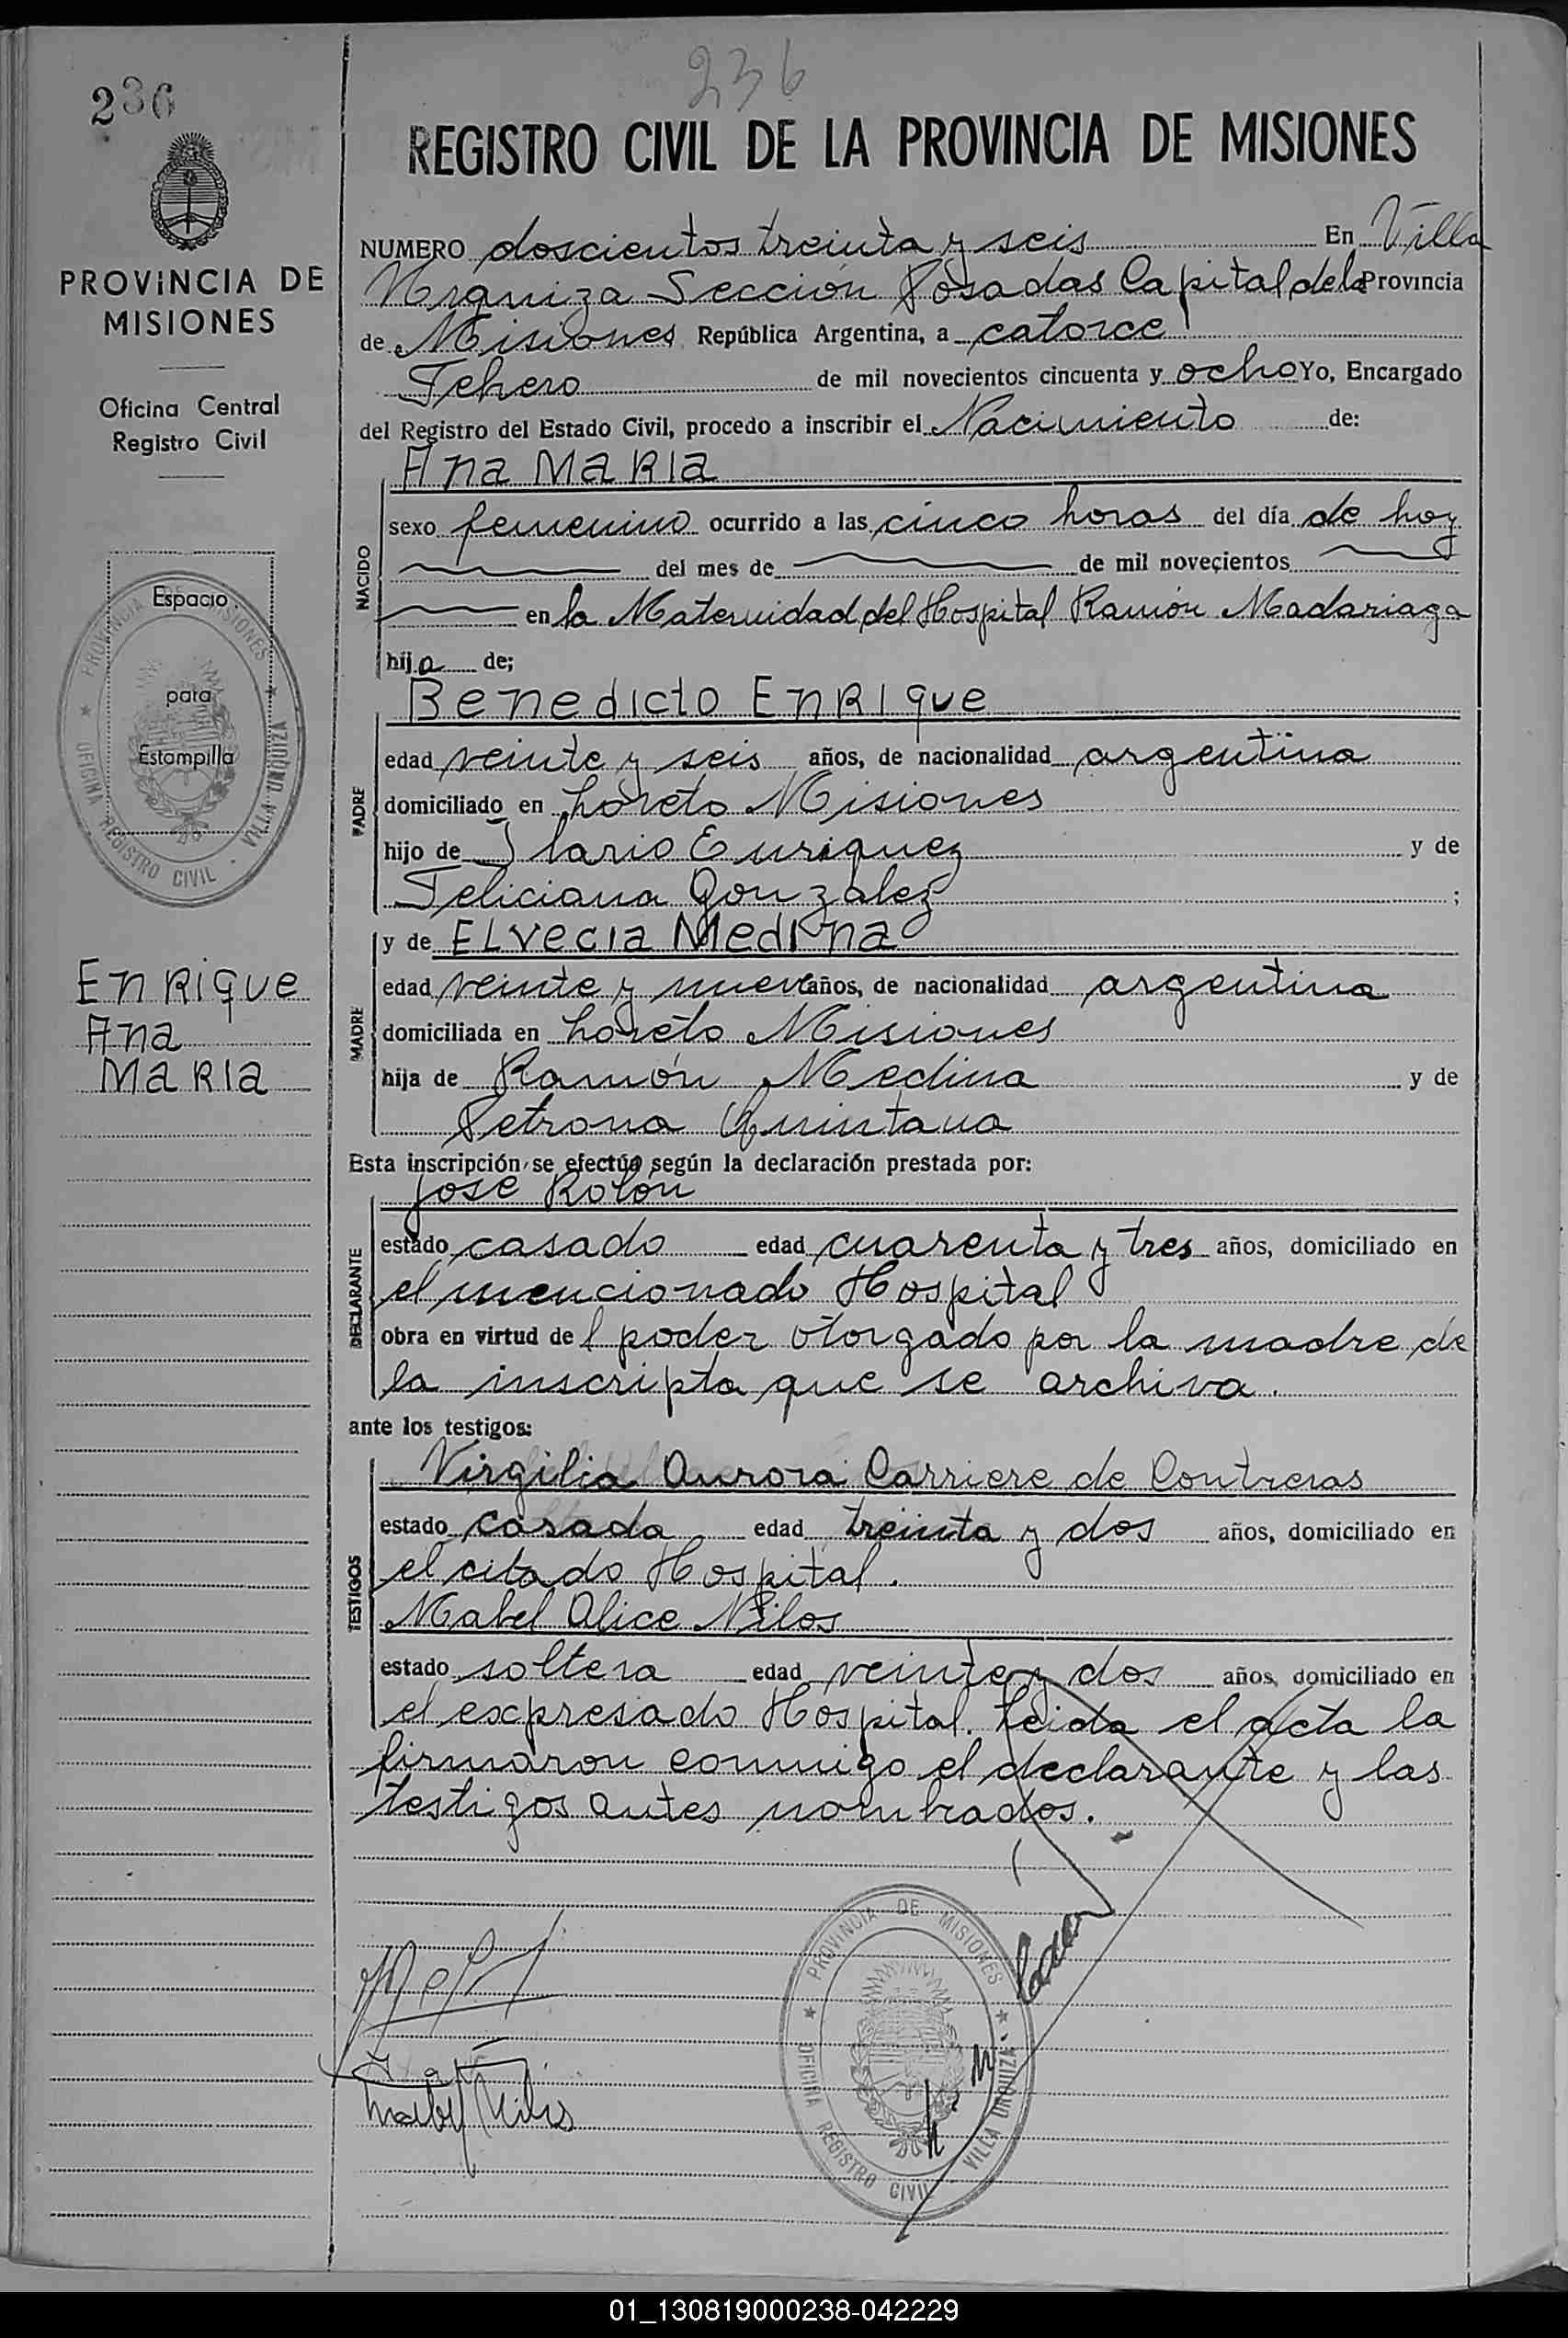 236
236
REGISTRO CIVIL DE LA PROVINCIA DE MISIONES
PROVINCIA DE
MISIONES
Oficina Central
Registro Civil
Espacio
para
Estampilla
PROVINCIA DE MISIONES
OFICINA REGISTRO CIVIL - VILLA URQUIZA
Enrique
Ana
Maria
NUMERO doscientos treinta y seis En Villa
Urquiza Sección Posadas Capital de la Provincia
de Misiones República Argentina, a catorce
Febrero de mil novecientos cincuenta y ocho Yo, Encargado
del Registro del Estado Civil, procedo a inscribir el Nacimiento de:
Ana Maria
NACIDO
sexo femenino ocurrido a las cinco horas del día de hoy
del mes de de mil novecientos
en la Maternidad del Hospital Ramón Madariaga
hija de;
Benedicto Enrique
PADRE
edad veinte y seis años, de nacionalidad argentina
domiciliado en Loreto Misiones
hijo de Ilario Enriquez y de
Feliciana Gonzalez ;
y de Elvecia Medina
MADRE
edad veinte y nueve años, de nacionalidad argentina
domiciliada en Loreto Misiones
hija de Ramón Medina y de
Petrona Quintana
Esta inscripción se efectúa según la declaración prestada por:
José Rolón
DECLARANTE
estado casado edad cuarenta y tres años, domiciliado en
el mencionado Hospital
obra en virtud del poder otorgado por la madre de
la inscripta que se archiva.
ante los testigos:
Virgilia Aurora Carriere de Contreras
TESTIGOS
estado casada edad treinta y dos años, domiciliado en
el citado Hospital.
Mabel Alice Nilos
estado soltera edad veinte y dos años, domiciliado en
el expresado Hospital. Leida el acta la
firmaron conmigo el declarante y las
testigos antes nombrados.
PROVINCIA DE MISIONES
OFICINA REGISTRO CIVIL - VILLA URQUIZA
01_130819000238-042229